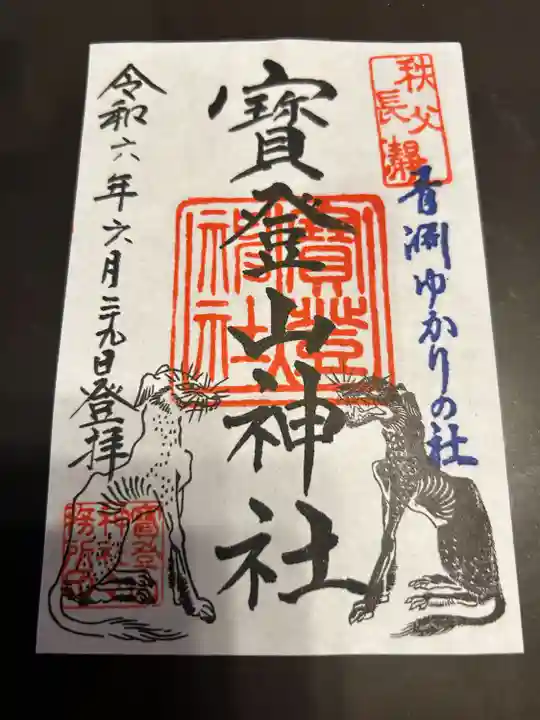 秩父
長瀞
青淵ゆかりの社
寳登山神社
寳登
山神社
令和六年六月二十九日登拝
寳登山
神社
務所印